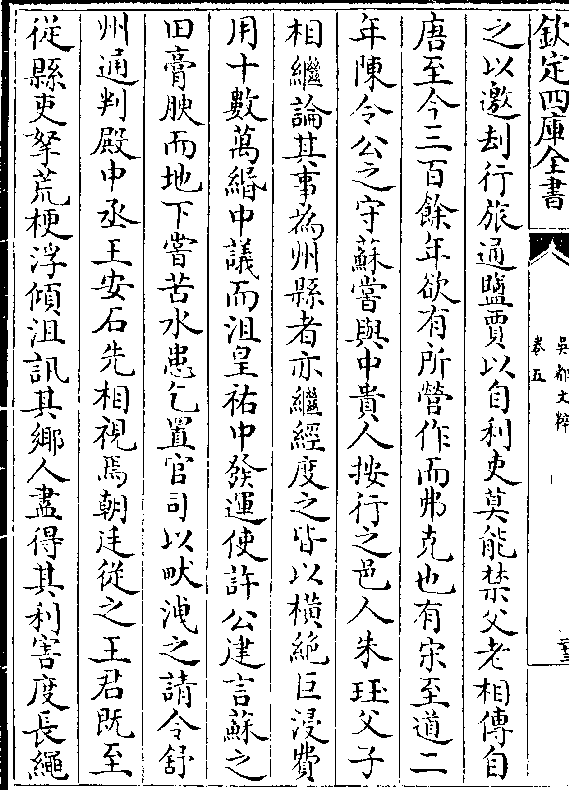 欽定四庫全書
吳都文粹
卷五
之以邀刦行旅通鹽賈以自利吏莫能禁父老相傳自
唐至今三百餘年欲有所營作而弗克也有宋至道二
年陳令公之守蘇嘗與中貴人按行之邑人朱珏父子
相繼論其事為州縣者亦繼經度之皆以橫絶巨浸費
用十數萬緡中議而沮皇祐中發運使許公建言蘇之
田膏腴而地下嘗苦水患乞置官司以畎洩之請令舒
州通判殿中丞王安石先相視焉朝廷從之王君既至
從縣吏拏荒梗浮傾沮訊其鄉人盡得其利害度長繩